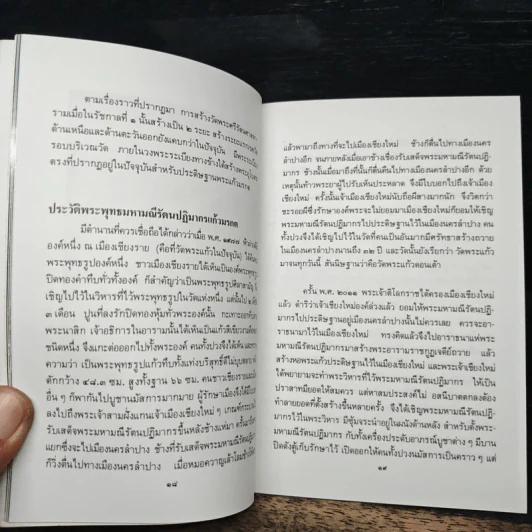 ตามเรื่องราวที่ปรากฏมา การสร้างวัดพระศรีรัตนศาสดา
รามเมื่อในรัชกาลที่ ๑ นั้นสร้างเป็น ๒ ระยะ สร้างระยะแรก
ด้านเหนือและด้านตะวันออกยังแคบกว่าในปัจจุบัน มีพระระเบียง
รอบบริเวณวัด ภายในวงพระระเบียงทางข้างใต้สร้างพระอุโบสถ
ตรงที่ปรากฏอยู่ในปัจจุบันสำหรับประดิษฐานพระแก้วมรกต
ประวัติพระพุทธมหามณีรัตนปฏิมากรแก้วมรกต
มีตำนานที่ควรเชื่อถือได้กล่าวว่าเมื่อ พ.ศ. ๑๙๗๗
องค์หนึ่ง ณ เมืองเชียงราย (คือที่วัดพระแก้วในปัจจุบัน) ได้เห็น
พระพุทธรูปองค์หนึ่ง ชาวเมืองเชียงรายได้เห็นเป็นองค์พระ
ปิดทองคำทึบทั่วทั้งองค์ ก็สำคัญว่าเป็นพระพุทธรูปศิลาสามัญ
เชิญไปไว้ในวิหารที่ไว้พระพุทธรูปในวัดแห่งหนึ่ง แต่นั้นไป ๒
๓ เดือน ปูนที่ลงรักปิดทองหุ้มทั่วพระองค์นั้น กะเทาะออกที่
พระนาสิก เจ้าอธิการในอารามนั้นได้เห็นเป็นแก้วสีเขียวงาม
ชนิดหนึ่ง จึงแกะต่อออกไปทั้งพระองค์ คนทั้งปวงจึงได้เห็นและ
ความว่า เป็นพระพุทธรูปแก้วทึบทั้งแท่งบริสุทธิ์ดีไม่บุบสลาย
ตักกว้าง ๔๘.๓ ซม. สูงทั้งฐาน ๖๖ ซม. คนชาวเชียงรายและ
อื่น ๆ ก็พากันไปบูชานมัสการมากมาย ผู้รักษาเมืองจึงได้มีใบบอก
ลงไปถึงพระเจ้าสามฝั่งแกนเจ้าเมืองเชียงใหม่ ๆ เกณฑ์กระบวน
รับเสด็จพระมหามณีรัตนปฏิมากรขึ้นหลังช้างแห่มา ครั้นมาถึง
แยกซึ่งจะไปเมืองนครลำปาง ช้างที่รับเสด็จพระมหามณีรัตน
ก็วิ่งตื่นไปทางเมืองนครลำปาง เมื่อหมอควาญเล้าโลมช้าง
๑๘
แล้วพามาถึงทางที่จะไปเมืองเชียงใหม่ ช้างก็ตื่นไปทางเมืองนคร
ลำปางอีก จนภายหลังเมื่อเอาช้างเชื่องรับเสด็จพระมหามณีรัตนปฏิ-
มากรนั้น เมื่อมาถึงที่นั้นก็ตื่นคืนไปทางเมืองนครลำปางอีก ด้วย
เหตุนั้นท้าวพระยาผู้ไปรับเห็นประหลาด จึงมีใบบอกไปถึงเจ้าเมือง
เชียงใหม่ ครั้งนั้นเจ้าเมืองเชียงใหม่นับถือผีสางมากนัก จึงวิตกว่า
ชะรอยผีซึ่งรักษาองค์พระจะไม่ยอมมาเมืองเชียงใหม่ก็ยอมให้เชิญ
พระมหามณีรัตนปฏิมากรไปประดิษฐานไว้ในเมืองนครลำปาง คน
ทั้งปวงจึงได้เชิญไปไว้ในวัดที่คนเป็นอันมากมีศรัทธาสร้างถวาย
ในเมืองนครลำปางนานถึง ๓๒ ปี และวัดนั้นยังเรียกว่า วัดพระแก้ว
มาจนทุกวันนี้ สันนิษฐานว่าคือวัดพระแก้วดอนเต้า
ครั้น พ.ศ. ๒๐๑๑ พระเจ้าติโลกราชได้ครองเมืองเชียงใหม่
แล้ว ดำริว่าเจ้าเชียงใหม่องค์ล่วงแล้ว ยอมให้พระมหามณีรัตนปฏิมากร
ไปประดิษฐานอยู่เมืองนครลำปางนั้นไม่ควรเลย ควรจะอา-
ราธนามาไว้ในเมืองเชียงใหม่ ทรงคิดแล้วจึงไปอาราธนาแห่พระ
มหามณีรัตนปฏิมากรมาสร้างพระอารามราชกูฎเจดีย์ถวาย แล้ว
สร้างหอพระแก้วประดิษฐานไว้ในเมืองเชียงใหม่ และพระเจ้าเชียงใหม่
ได้พยายามจะทำพระวิหารที่ไว้พระมหามณีรัตนปฏิมากร ให้เป็น
ปราสาทมียอดให้สมควร แต่หาสมประสงค์ไม่ อสนีบาตตกลงต้อง
ทำลายยอดที่ตั้งสร้างขึ้นหลายครั้ง จึงได้เชิญพระมหามณีรัตนปฏิ-
มากรไว้ในพระวิหาร มีซุ้มจระนำอยู่ในผนังด้านหลัง สำหรับตั้งพระ
มหามณีรัตนปฏิมากร กับทั้งเครื่องประดับอาภรณ์บูชาต่าง ๆ มีบาน
ปิดดังตู้เก็บรักษาไว้ เปิดออกให้คนทั้งปวงนมัสการเป็นคราว ๆ แต่
๑๙